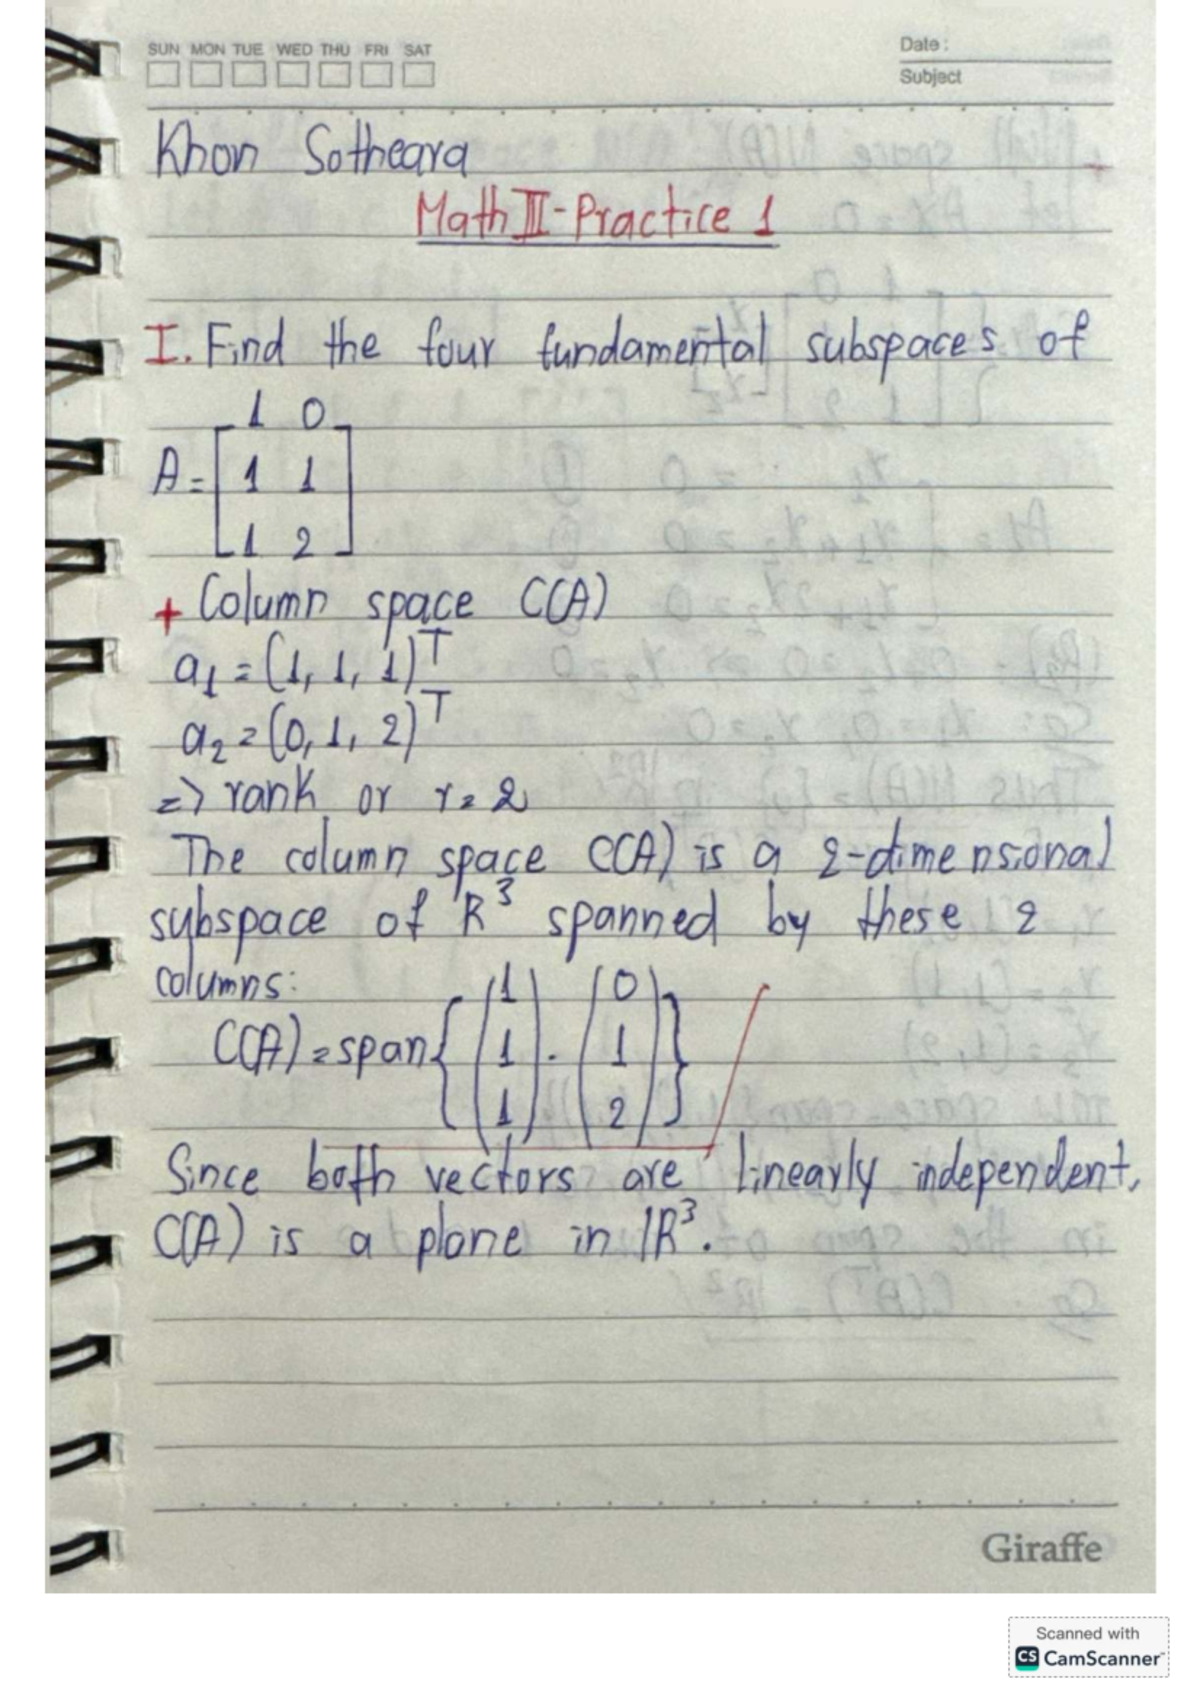 SUN MON TUE WED THU FRI SAT
Date :
Subject
Khon Sotheara
Math III - Practice 1
I. Find the four fundamental subspaces of
1 0
A = 1 1
1 2
+ Column space C(A)
a1 = (1, 1, 1)^T
a2 = (0, 1, 2)^T
=> rank or r = 2
The column space C(A) is a 2-dimensional
subspace of R^3 spanned by these 2
columns:
C(A) = span { (1 1 1) . (0 1 2) }
Since both vectors are linearly independent,
C(A) is a plane in IR^3.
Giraffe
Scanned with
CS CamScanner